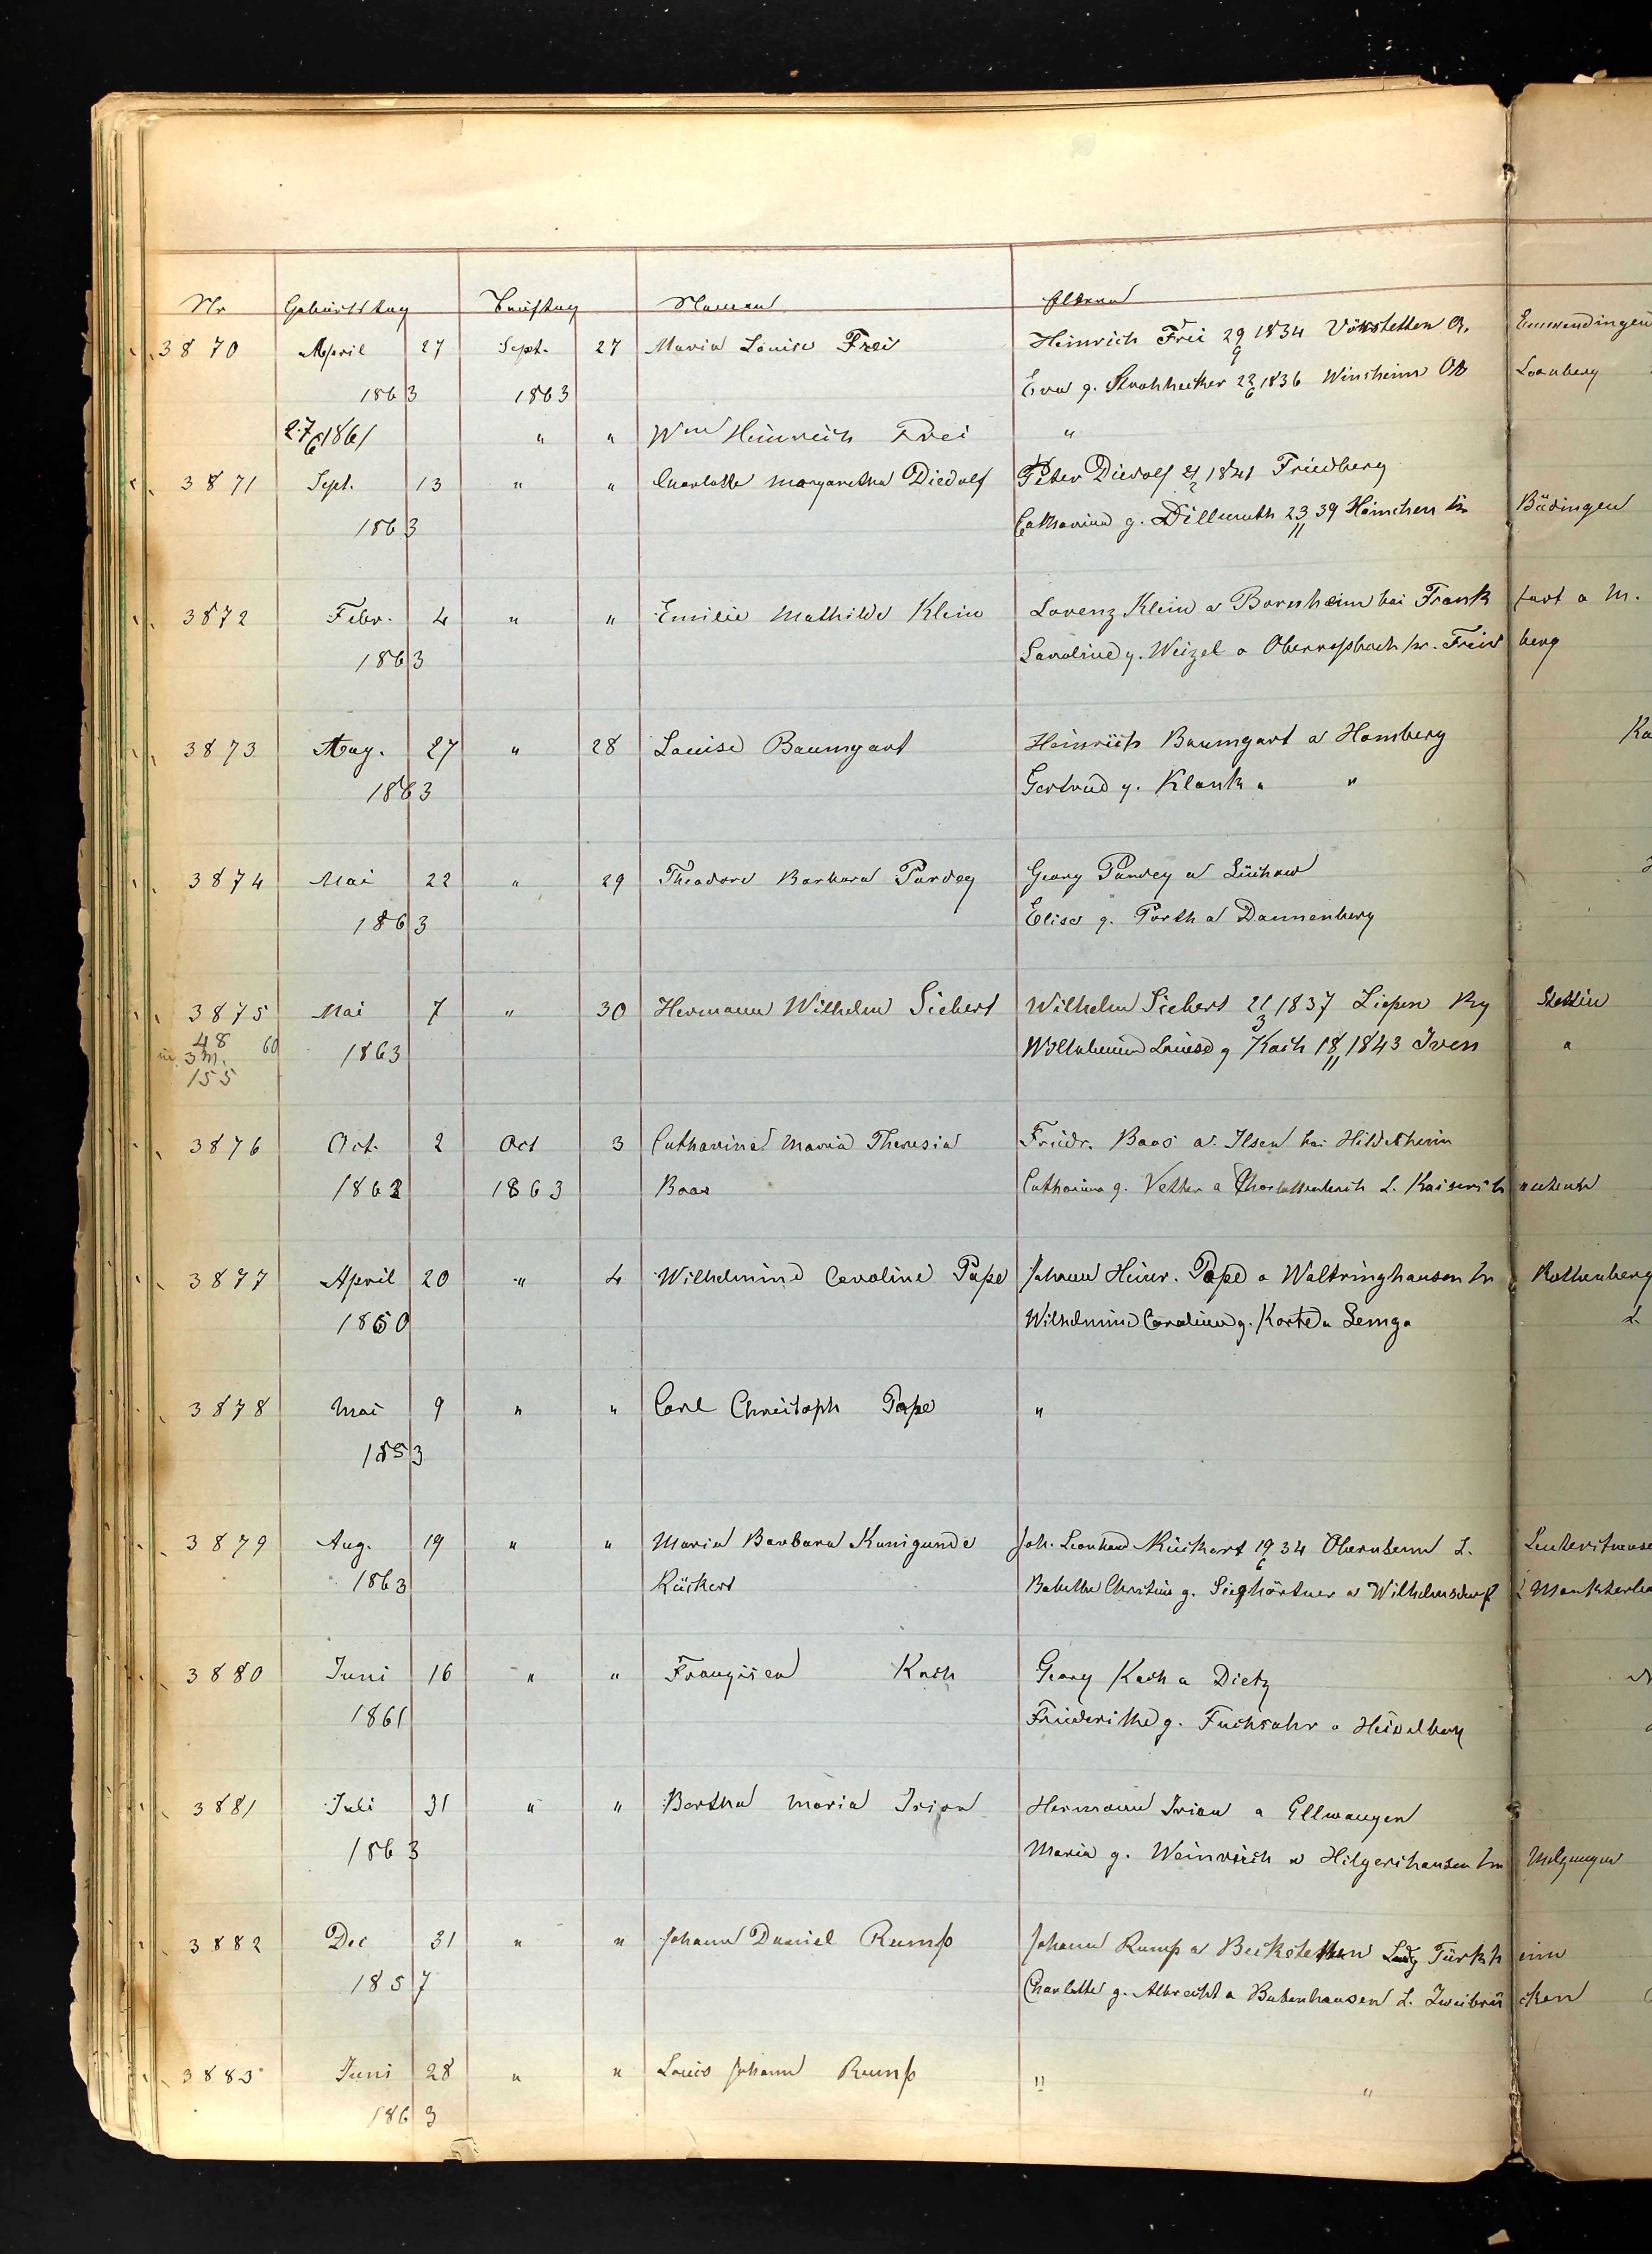 Nr Geburtstag Tauftag Namen Eltern
3870 April 27 Sept. 27 Maria Louise Frei Heinrich Frei 29/9 1834 Vörstetten A. Emmendingen
1863 1863 Eva g. Strohhecker 22/6 1836 Winsheim OA Leonberg
27/6 1861 " " Wm Heinrich Frei "
3871 Sept. 13 " " Charlotte Margaretha Diedolf Peter Diedolf 21/2 1841 Friedberg
1863 Catharina g. Dillmuth 23/11 39 Hainchen Büdingen
3872 Febr. 4 " " Emilie Mathilde Klein Lorenz Klein a Bornheim bei Frankfurt a M.
1863 Caroline g. Weizel a Oberrosbach kr. Friedberg
3873 Aug. 27 " 28 Louise Baumgart Heinrich Baumgart a Homberg
1863 Gertrud g. Klank a "
3874 Mai 22 " 29 Theodore Barbara Pardey Georg Pardey a Lüchow
1863 Elise g. Porth a Dannenberg
3875 Mai 7 " 30 Hermann Wilhelm Siebert Wilhelm Siebert 21/3 1837 Liepen Rg Stettin
48 60 1863 Wilhelmine Louise g Koch 18/11 1843 Iven "
3 M.
155
3876 Oct. 2 Oct 3 Catharina Maria Theresia Friedr. Baas a. Ilsen bei Hildesheim
1862 1863 Baas Catharina g. Vetter a L. Kaiserslautern
3877 April 20 " 4 Wilhelmine Caroline Pape Johann Heinr. Pape a Waltringhausen Rothenberg
1850 Wilhelmine Caroline g. Korte a Lemgo L.
3878 Mai 9 " " Carl Christoph Pape "
1853
3879 Aug. 19 " " Maria Barbara Kunigunde Joh. Leonhard Rückert 19/6 34 Obernbenn L.
1863 Rückert Babette Christine g. Sieghörtner a Wilhelmsdorf L
3880 Juni 16 " " Franzisca Koch Georg Koch a Dietz
1861 Friederike g. Fuchslohr a Heidelberg
3881 Juli 31 " " Bertha Maria Irion Hermann Irion a Ellwangen
1863 Maria g. Weinreich a Hilgershausen Melsungen
3882 Dec 31 " " Johann Daniel Rumpf Johann Rumpf a Beckstetten Ldg Türkheim
1857 Charlotte g. Albrecht a Bubenhausen L. Zweibrücken
3883 Juni 28 " " Louis Johann Rumpf " "
1863